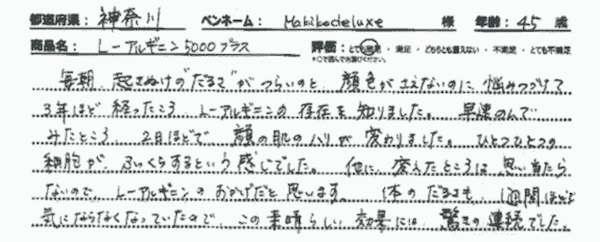 都道府県： 神奈川 ペンネーム： Makibodeluxe 様 年齢： 45 歳
商品名： L-アルギニン5000プラス 評価： とても満足 ・ 満足 ・ どちらとも言えない ・ 不満足 ・ とても不満足
*○で囲んでお選びください。
毎朝、起きぬけの"だるさ"がつらいのと、顔色がさえないのに悩みつづけて
3年ほど経ったころ L-アルギニンの存在を知りました。 早速のんで
みたところ、2日ほどで 顔の肌のハリが変わりました。ひとつひとつの
細胞が、ふっくらするという感じでした。 他に、変えたところは思い当たら
ないので、L-アルギニンのおかげだと思います。 体のだるさも、1週間ほどで
気にならなくなっていたので、この素晴らしい効果には、驚きの連続でした。